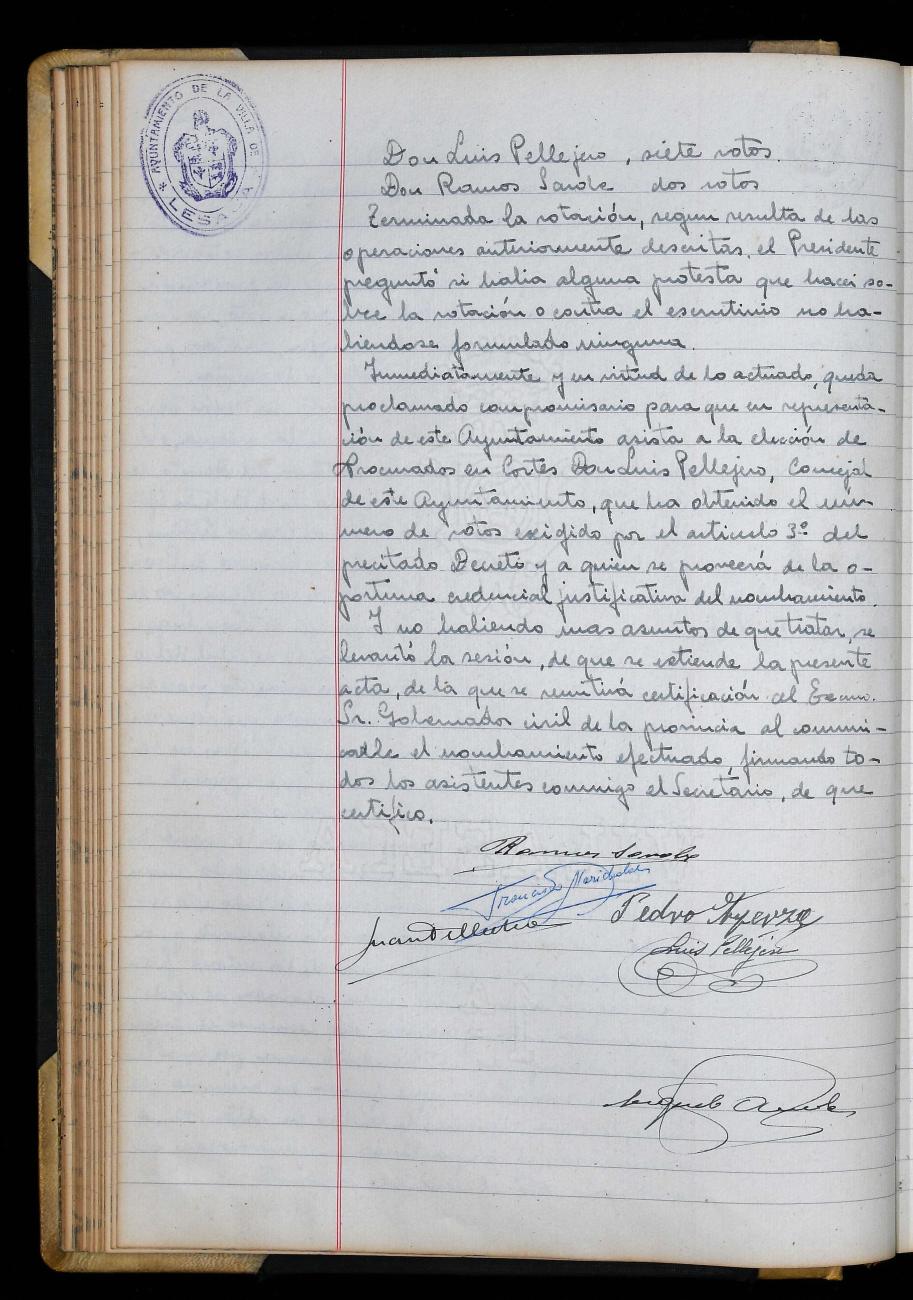 AYUNTAMIENTO DE LA VILLA DE
LESACA
Don Luis Pellejero, siete votos.
Don Ramos Sarde dos votos
Terminada la votación, segun resulta de las
operaciones anteriormente descritas, el Presidente
preguntó si habia alguna protesta que hacer so-
bre la votación o contra el escrutinio no ha-
biendose formulado ninguna.
Inmediatamente y en virtud de lo actuado, queda
proclamado compromisario para que en representa-
ción de este Ayuntamiento asista a la elección de
Procurados en Cortes Don Luis Pellejero, Concejal
de este Ayuntamiento, que ha obtenido el nú-
mero de votos exigido por el articulo 3º del
precitado Decreto y a quien se proveerá de la o-
portuna credencial justificativa del nombramiento.
Y no habiendo mas asuntos de que tratar, se
levantó la sesión, de que se extiende la presente
acta, de la que se remitirá certificación al Excmo.
Sr. Gobernador civil de la provincia al comuni-
carle el nombramiento efectuado, firmando to-
dos los asistentes conmigo el Secretario, de que
certifico.
Ramos
Francisco
Juan Pedro
Luis Pellejero